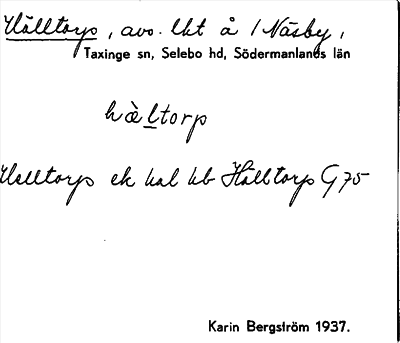 Hälltorp, avs. lht å 1 Näsby,
Taxinge sn, Selebo hd, Södermanlands län
hàltorp
Halltorp ek kal kb Hälltorp G 75
Karin Bergström 1937.